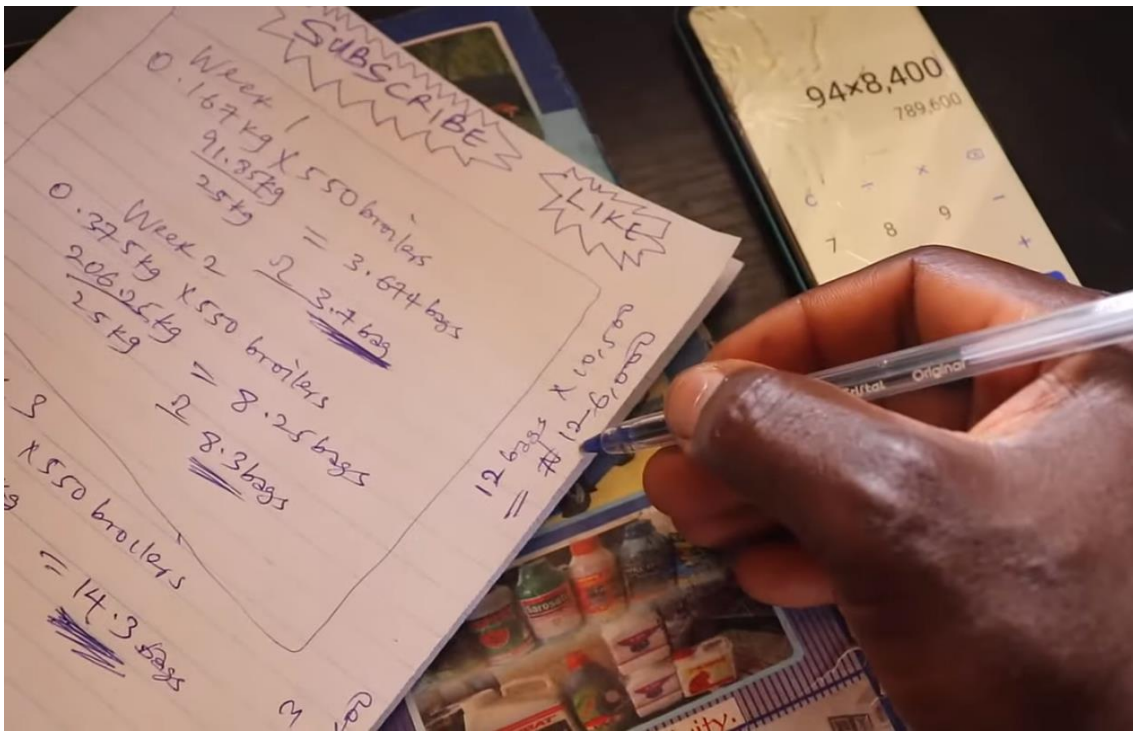 SUBSCRIBE
LIKE
Week 1
0.167kg X 550 broilers
91.85kg
25kg
= 3.674 bags
Ω 3.7 bag
Week 2
0.375kg X 550 broilers
206.25kg
25kg
= 8.25 bags
Ω 8.3 bags
3
X 550 broilers
= 14.3 bags
12 bags X 10,500
= ₦ 126,000
94×8,400
789,600
C ÷ ×
7 8 9 −
+
Original